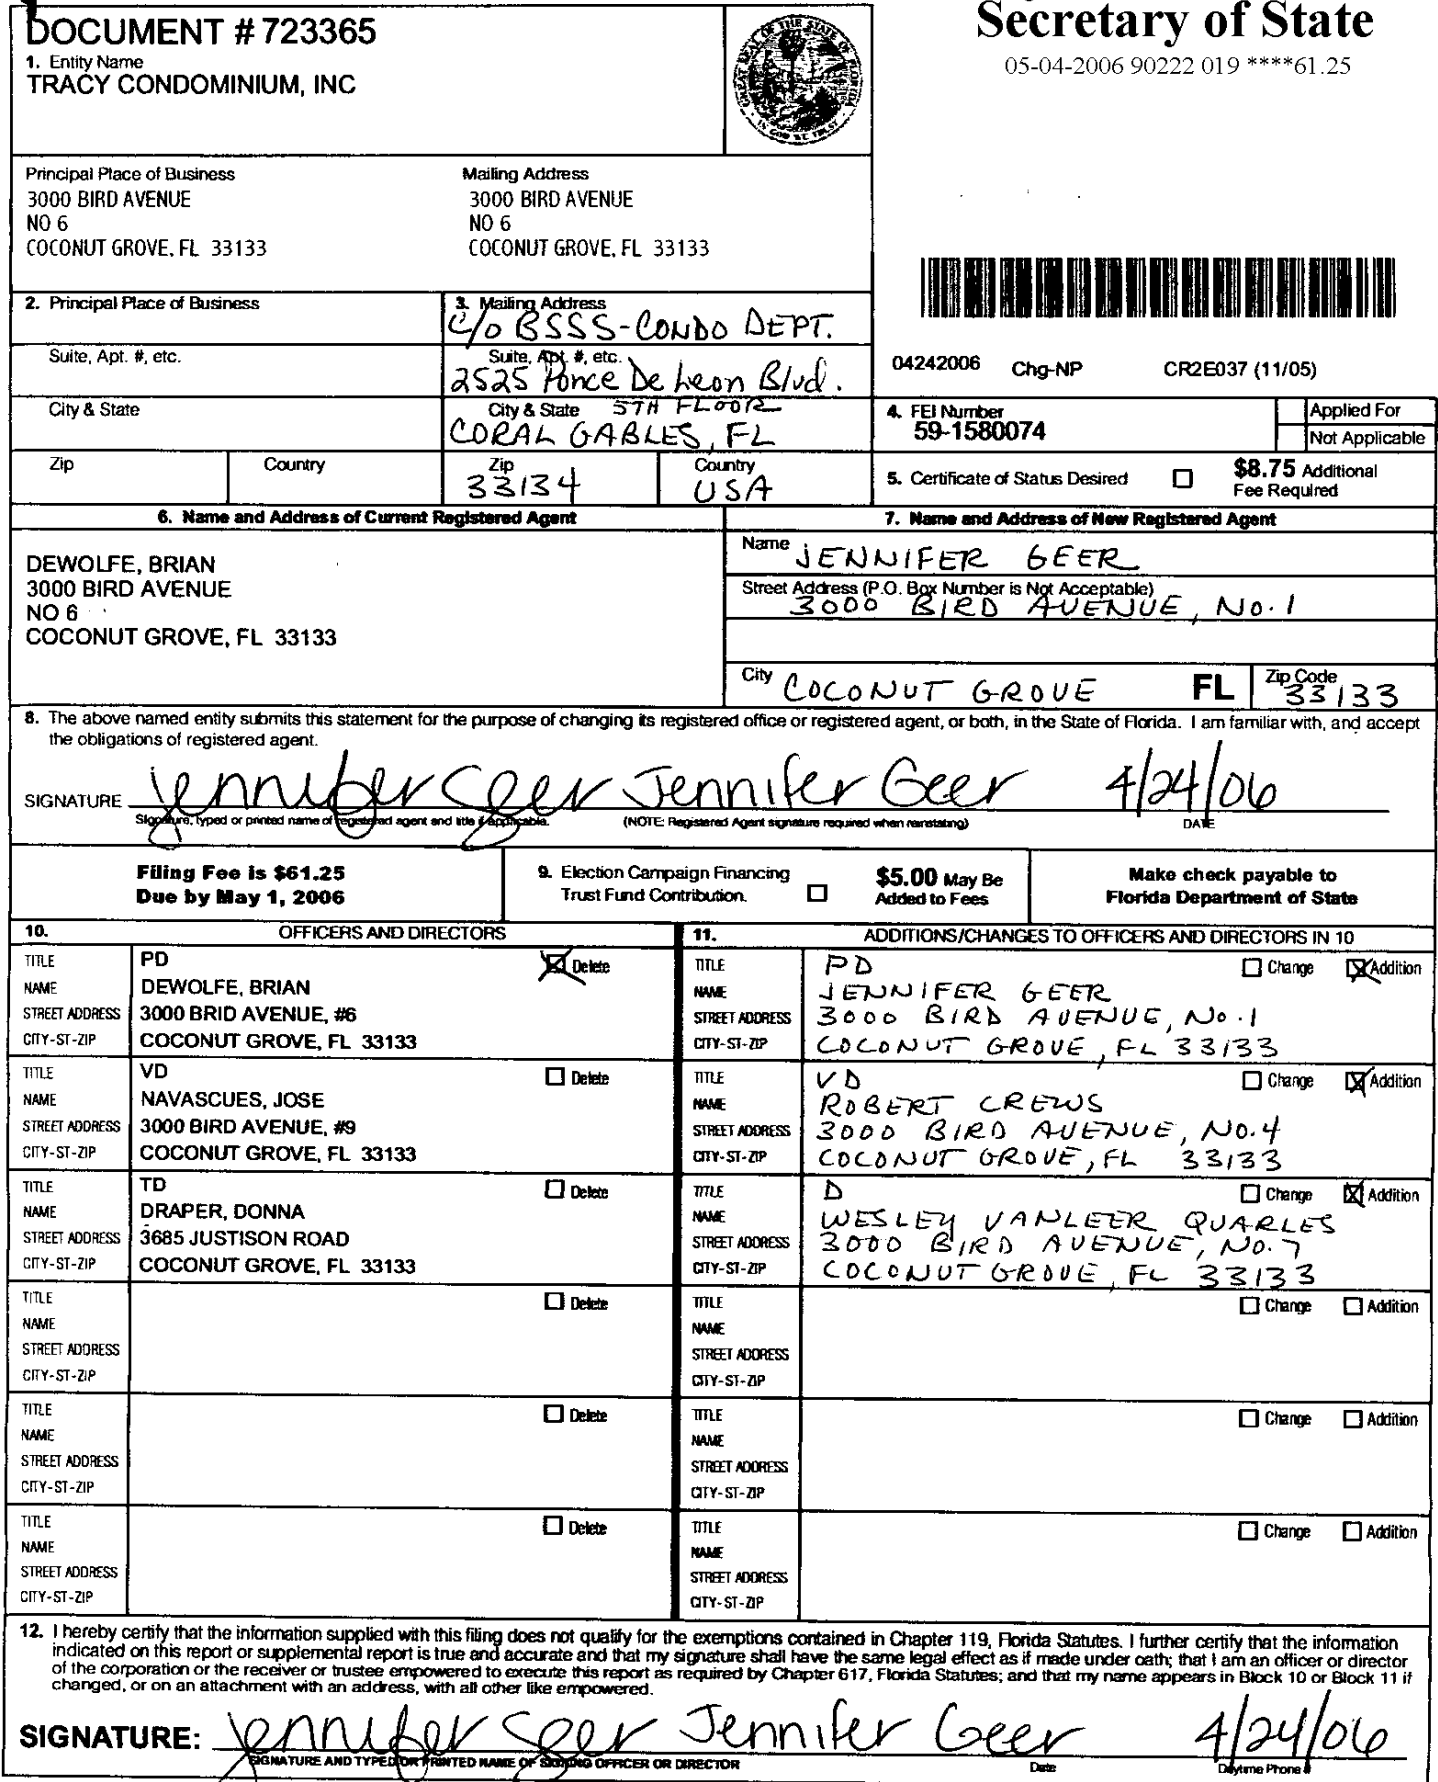 Secretary of State
05-04-2006 90222 019 ****61.25
DOCUMENT # 723365
1. Entity Name
TRACY CONDOMINIUM, INC
GREAT SEAL OF THE STATE OF FLORIDA
IN GOD WE TRUST
Principal Place of Business
3000 BIRD AVENUE
NO 6
COCONUT GROVE, FL 33133
Mailing Address
3000 BIRD AVENUE
NO 6
COCONUT GROVE, FL 33133
2. Principal Place of Business
Suite, Apt. #, etc.
City & State
Zip Country
3. Mailing Address
C/O BSSS-CONDO DEPT.
Suite, Apt. #, etc.
2525 Ponce De Leon Blvd.
City & State 5TH FLOOR
CORAL GABLES, FL
Zip Country
33134 USA
04242006 Chg-NP CR2E037 (11/05)
4. FEI Number Applied For
59-1580074 Not Applicable
5. Certificate of Status Desired $8.75 Additional
Fee Required
6. Name and Address of Current Registered Agent
DEWOLFE, BRIAN
3000 BIRD AVENUE
NO 6
COCONUT GROVE, FL 33133
7. Name and Address of New Registered Agent
Name JENNIFER GEER
Street Address (P.O. Box Number is Not Acceptable)
3000 BIRD AVENUE, No. 1
City COCONUT GROVE FL Zip Code 33133
8. The above named entity submits this statement for the purpose of changing its registered office or registered agent, or both, in the State of Florida. I am familiar with, and accept
the obligations of registered agent.
SIGNATURE Jennifer Geer Jennifer Geer 4/24/06
Signature, typed or printed name of registered agent and title if applicable. (NOTE: Registered Agent signature required when reinstating) DATE
Filing Fee is $61.25
Due by May 1, 2006
9. Election Campaign Financing
Trust Fund Contribution.
$5.00 May Be
Added to Fees
Make check payable to
Florida Department of State
10. OFFICERS AND DIRECTORS
TITLE PD Delete
NAME DEWOLFE, BRIAN
STREET ADDRESS 3000 BRID AVENUE, #6
CITY-ST-ZIP COCONUT GROVE, FL 33133
TITLE VD Delete
NAME NAVASCUES, JOSE
STREET ADDRESS 3000 BIRD AVENUE, #9
CITY-ST-ZIP COCONUT GROVE, FL 33133
TITLE TD Delete
NAME DRAPER, DONNA
STREET ADDRESS 3685 JUSTISON ROAD
CITY-ST-ZIP COCONUT GROVE, FL 33133
TITLE Delete
NAME
STREET ADDRESS
CITY-ST-ZIP
TITLE Delete
NAME
STREET ADDRESS
CITY-ST-ZIP
TITLE Delete
NAME
STREET ADDRESS
CITY-ST-ZIP
11. ADDITIONS/CHANGES TO OFFICERS AND DIRECTORS IN 10
TITLE PD Change Addition
NAME JENNIFER GEER
STREET ADDRESS 3000 BIRD AVENUE, No. 1
CITY-ST-ZIP COCONUT GROVE, FL 33133
TITLE VD Change Addition
NAME ROBERT CREWS
STREET ADDRESS 3000 BIRD AVENUE, No. 4
CITY-ST-ZIP COCONUT GROVE, FL 33133
TITLE D Change Addition
NAME WESLEY VANLEER QUARLES
STREET ADDRESS 3000 BIRD AVENUE, No. 7
CITY-ST-ZIP COCONUT GROVE, FL 33133
TITLE Change Addition
NAME
STREET ADDRESS
CITY-ST-ZIP
TITLE Change Addition
NAME
STREET ADDRESS
CITY-ST-ZIP
TITLE Change Addition
NAME
STREET ADDRESS
CITY-ST-ZIP
12. I hereby certify that the information supplied with this filing does not qualify for the exemptions contained in Chapter 119, Florida Statutes. I further certify that the information
indicated on this report or supplemental report is true and accurate and that my signature shall have the same legal effect as if made under oath; that I am an officer or director
of the corporation or the receiver or trustee empowered to execute this report as required by Chapter 617, Florida Statutes; and that my name appears in Block 10 or Block 11 if
changed, or on an attachment with an address, with all other like empowered.
SIGNATURE: Jennifer Geer Jennifer Geer 4/24/06
SIGNATURE AND TYPED OR PRINTED NAME OF SIGNING OFFICER OR DIRECTOR Date Daytime Phone #